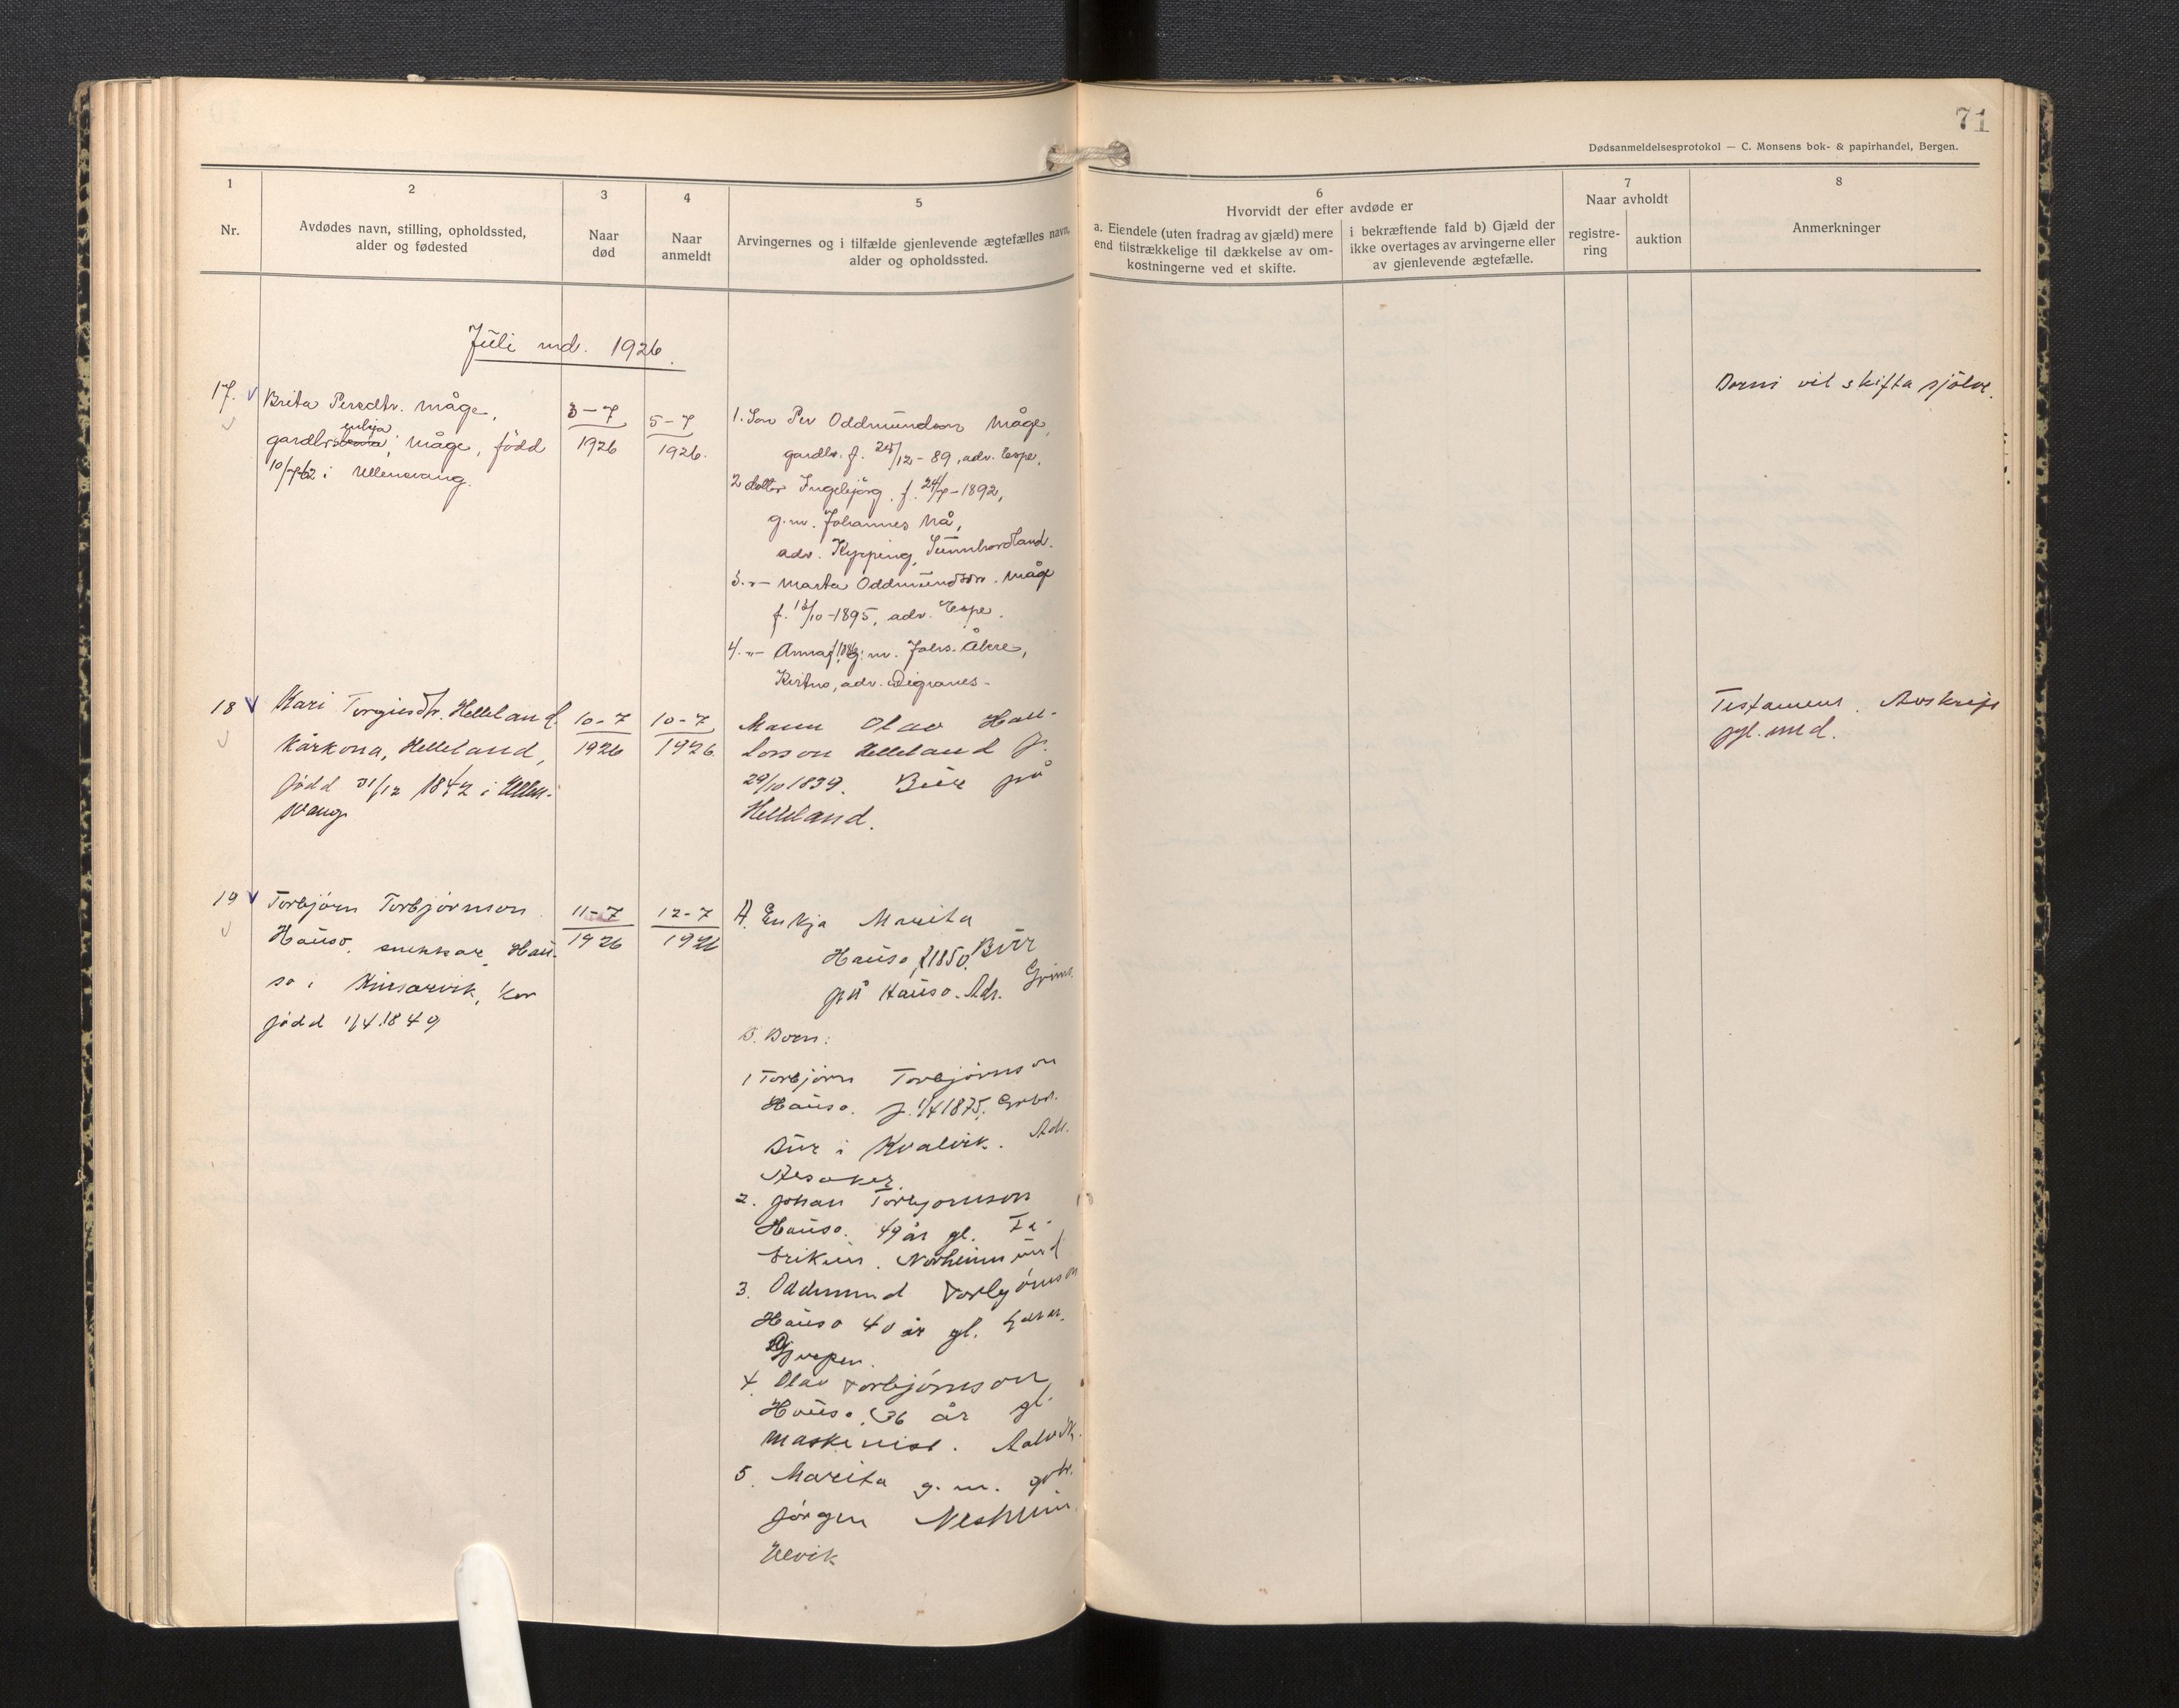 71
Dødsanmeldelsesprotokol — C. Monsens bok- & papirhandel, Bergen.
1
Nr.
2
Avdødes navn, stilling, opholdssted,
alder og fødested
3
Naar
død
4
Naar
anmeldt
5
Arvingernes og i tilfælde gjenlevende ægtefælles navn,
alder og opholdssted.
6
Hvorvidt der efter avdøde er
a. Eiendele (uten fradrag av gjæld) mere
end tilstrækkelige til dækkelse av om-
kostningerne ved et skifte.
i bekræftende fald b) Gjæld der
ikke overtages av arvingerne eller
av gjenlevende ægtefælle.
7
Naar avholdt
registre-
ring
auktion
8
Anmerkninger
Juli md. 1926.
17.
Brita Persdtr. Måge,
enkja
gardbr. Måge, född
10/7-62 i Ullensvang.
3-7
1926
5-7
1926.
1. Son Per Oddmundson Måge,
gardbr. f. 25/12-89, adr. Espe.
2 dotter Ingebjörg, f. 24/7-1892,
g.m. Johannes Nå,
adr. Kyrping, Sunnhordland.
3. -"- Marta Oddmundsdtr. Måge
f. 13/10-1895, adr. Espe.
4. -"- Anna g.m. Johs. Åkre,
adr. Digranes.
Borni vil skifta sjölve.
18
Kari Torgilsdtr. Helleland
kårkona, Helleland,
född 31/12 1842 i Ullens-
vang
10-7
1926
10-7
1926
Mann Olav Hal-
lorson Helleland f.
29/10 1839. Bur på
Helleland.
Testament. Avskrift
fylgl. med.
19
Torbjörn Torbjörnson
Hauso, snikkar, Hau-
so i Kinsarvik, kor
född 1/4 1849
11-7
1926
12-7
1926
A. Enkja Marita
Hauso, f 1850. Bur
på Hauso. Adr. Grimo.
B. Born:
1 Torbjörn Torbjörnson
Hauso. f. 1/4 1875. Grbr.
Bur i Kvalvik. Adr.
2. Johan Torbjörnson
Hauso. 49 år gl. Fa-
brikeier. Norheimsund
3. Oddmund Torbjörnson
Hauso 40 år gl.
4. Olav Torbjörnson
Hauso. 36 år gl.
maskinist. Aalvik.
5. Marita g.m. grbr.
Jörgen Nesheim
Ulvik